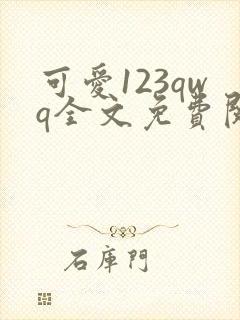 可愛123qw
q全文免費閱
石庫門